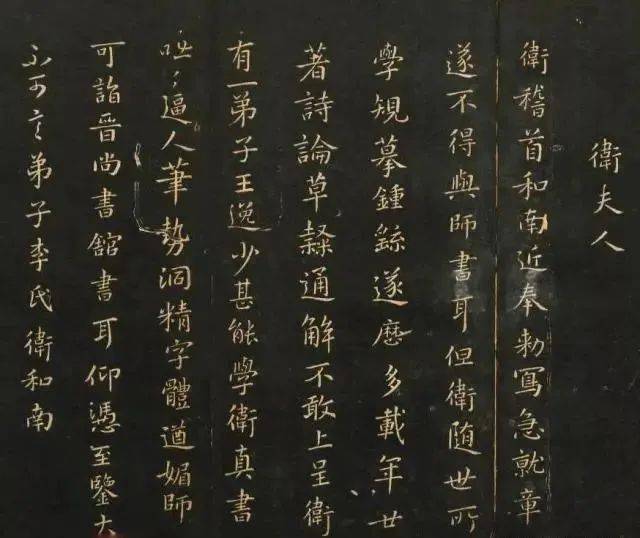 衛夫人
衛稽首和南近奉勅寫急就章
遂不得與師書耳但衛随世所
學規摹鍾繇遂歷多載年廿
著詩論草隸通解不敢上呈衛
有一弟子王逸少甚能學衛真書
咄〻逼人筆勢洞精字體遒媚師
可詣晉尚書館書耳仰憑至鑒大
不可言弟子李氏衛和南